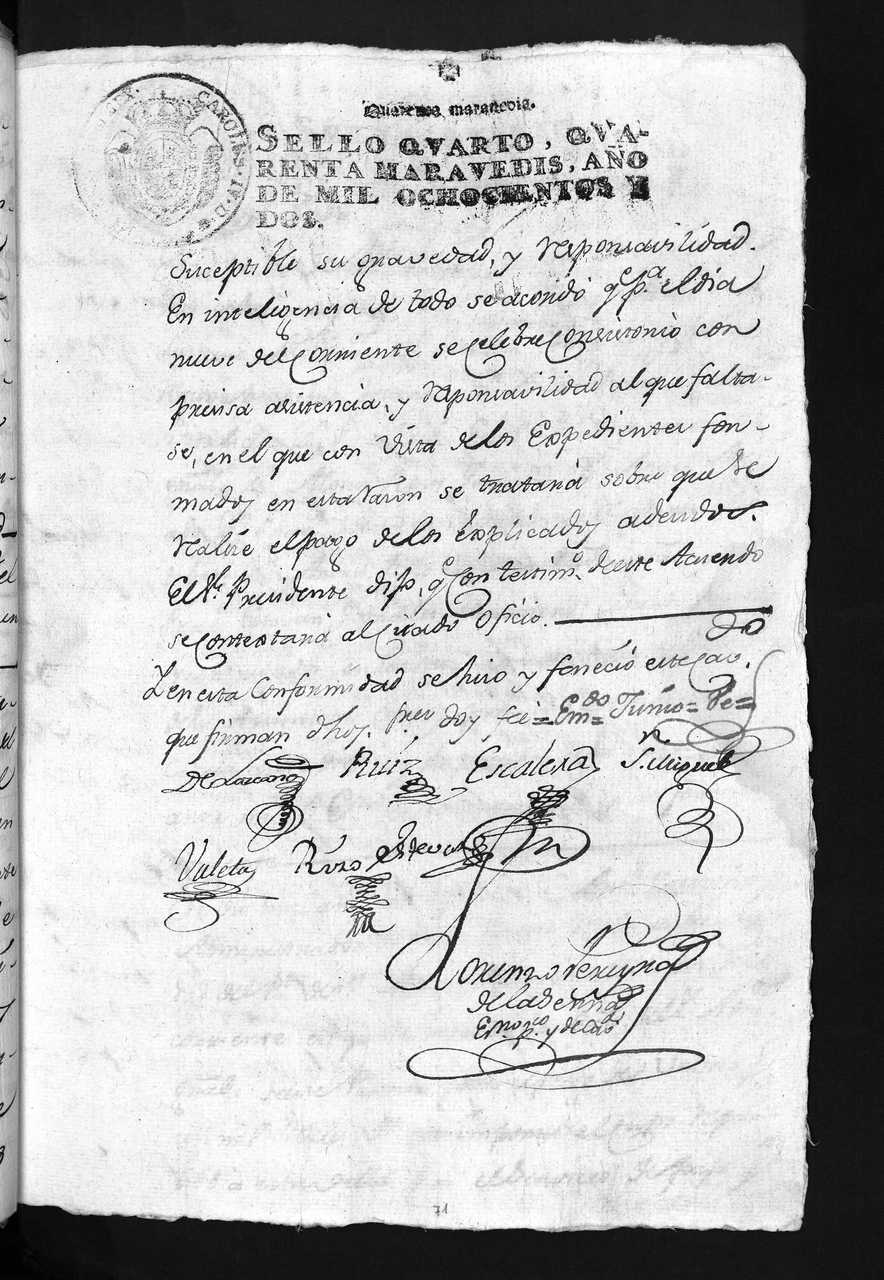 Quarenta maravedis.
CAROLUS. IV. D. G.
SELLO QVARTO, QVA-
RENTA MARAVEDIS, AÑO
DE MIL OCHOCIENTOS Y
DOS.
Suceptible su gravedad, y responsavilidad.
En inteligencia de todo se acordó qe pa. el dia
nueve del Corriente se celebre Consistorio con
precisa asistencia, y responsavilidad al que falta-
se, en el que con vista de los Expedientes for-
mados en esta razon se tratará sobre que se
realize el pago de los explicados adeudos.
El Sr. Presidente dispo. qe con testimo. de este Acuerdo
se Contextará al Citado Oficio.
Y en esta Conformidad se hizo y feneció este Cavdo.
que firman dhos. sres. doy fe = Emdo = Junio = Ve =
De Lozano Ruiz Escalera S. Miguel
Valeta Ruzo Estevan
Lorenzo Pereyra
de la Deñna
Esno. pco. y de Cavo.
71